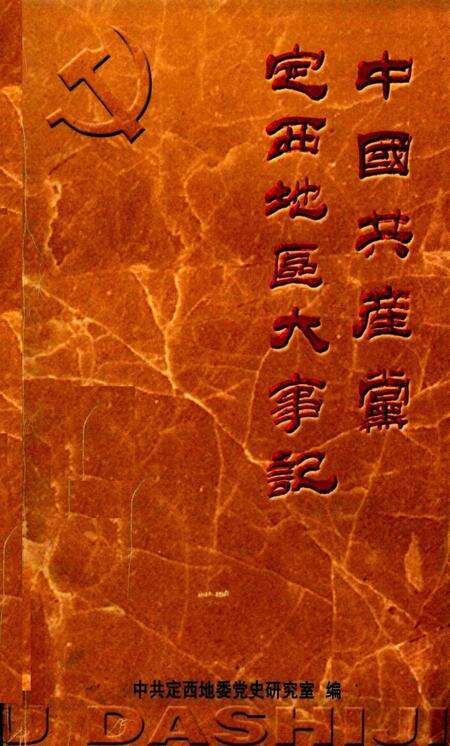 中國共產黨
定西地區大事記
中共定西地委党史研究室 编
U DASHIJI